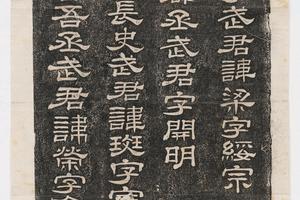 武君諱梁字綏宗
丞武君字開明
長史武君諱斑字宣
吾丞武君諱榮字